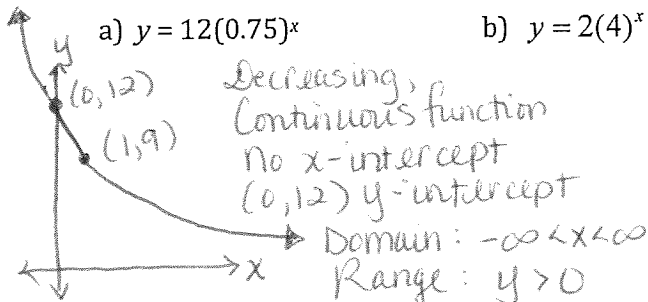 a) y = 12(0.75)ˣ
b) y = 2(4)ˣ
y
(0,12)
(1,9)
x
Decreasing,
Continuous function
no x-intercept
(0,12) y-intercept
Domain: -∞<x<∞
Range: y>0